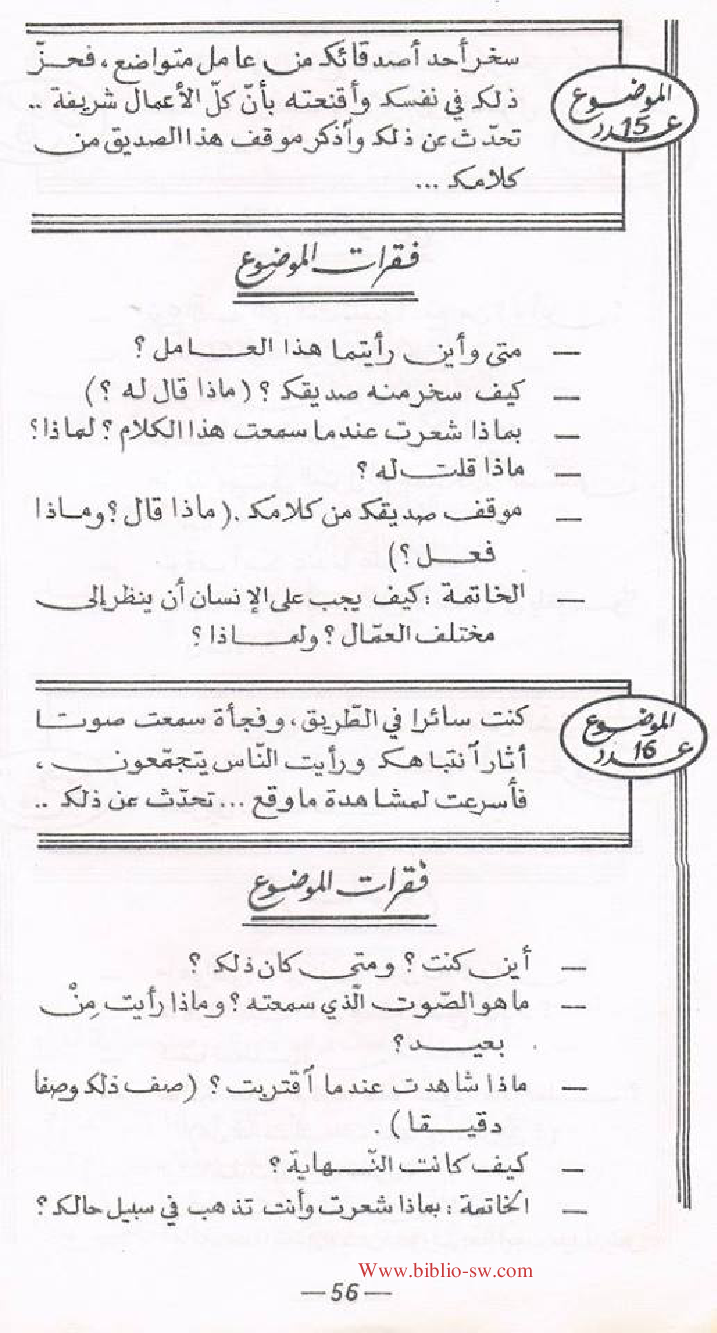 الموضوع
عدد 15
سخر أحد أصدقائك من عامل متواضع، فحزّ
ذلك في نفسك وأقنعته بأنّ كلّ الأعمال شريفة ..
تحدّث عن ذلك وٱذكر موقف هذا الصديق من
كلامك ...
فقرات الموضوع
— متى وأين رأيتما هذا العامل ؟
— كيف سخر منه صديقك ؟ (ماذا قال له ؟)
— بماذا شعرت عندما سمعت هذا الكلام ؟ لماذا؟
— ماذا قلت له ؟
— موقف صديقك من كلامك .( ماذا قال ؟ وماذا
فعل ؟)
— الخاتمة : كيف يجب على الإنسان أن ينظر إلى
مختلف العمّال ؟ ولماذا ؟
الموضوع
عدد 16
كنت سائرا في الطّريق، وفجأة سمعت صوتا
أثار ٱنتباهك ورأيت النّاس يتجمّعون ،
فأسرعت لمشاهدة ما وقع ... تحدّث عن ذلك ..
فقرات الموضوع
— أين كنت ؟ ومتى كان ذلك ؟
— ما هو الصّوت الّذي سمعته ؟ وماذا رأيت مِنْ
بعيد ؟
— ماذا شاهدت عندما ٱقتربت ؟ (صف ذلك وصفا
دقيقا) .
— كيف كانت النّهاية ؟
— الخاتمة : بماذا شعرت وأنت تذهب في سبيل حالك ؟
Www.biblio-sw.com
— 56 —